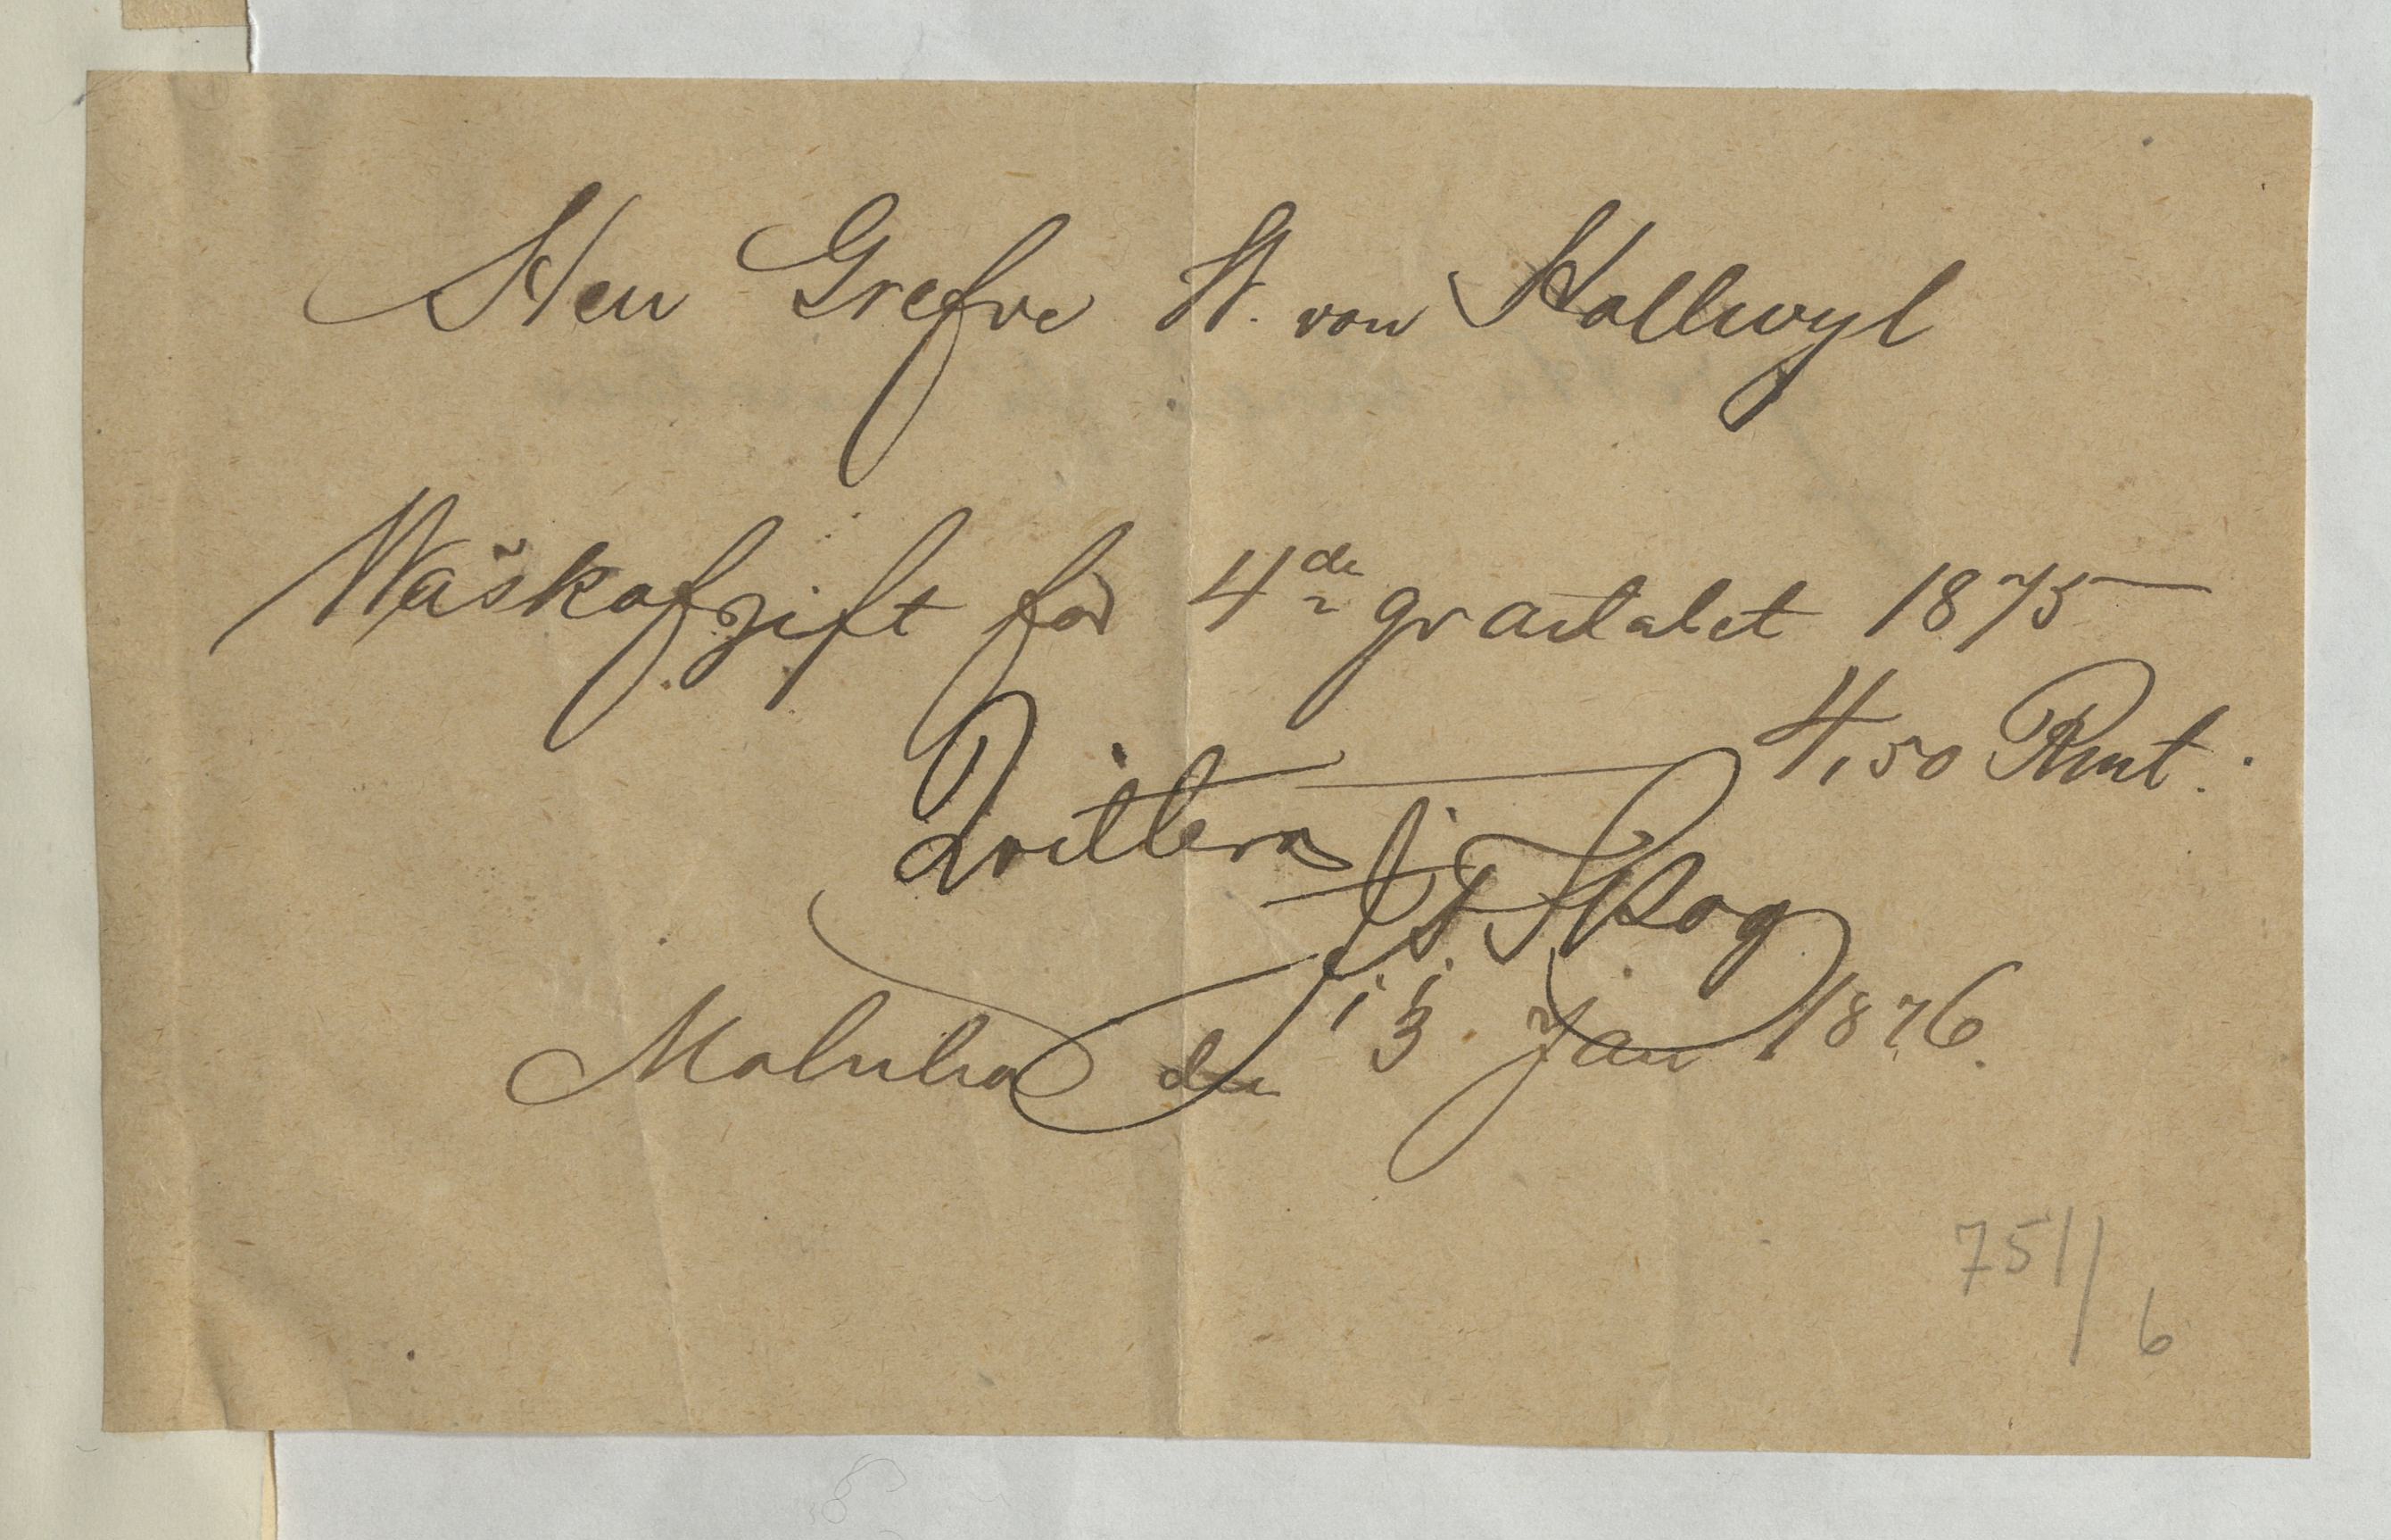 Herr Grefve W. von Hallwyl
Wäskafgift för 4de qvartalet 1875
4,50 Rmt.
Qvitteras
Skog
den 13 Jan 1876.
7511/6